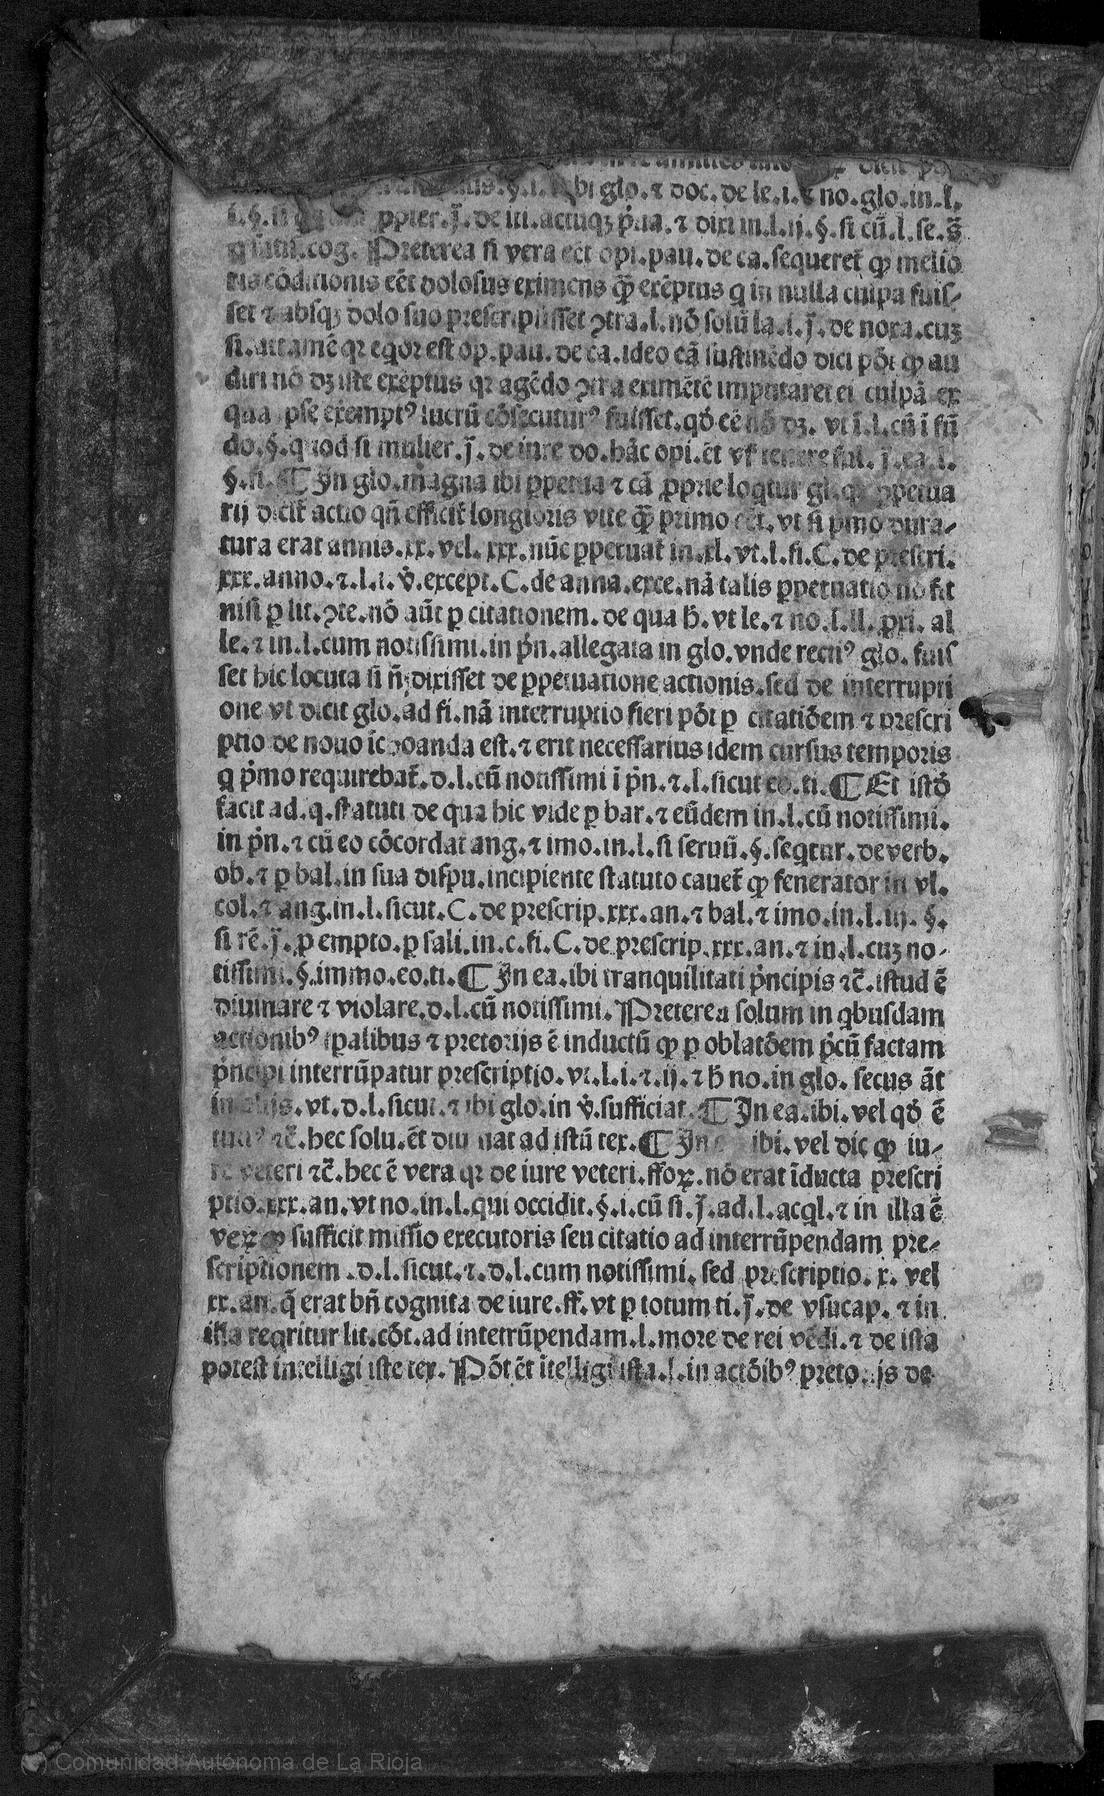 bi glo.⁊ doc.de le.i.⁊ no.glo.in.l.
ppter.j̄.de iii.actiuqꝫ ṗua.⁊ dixi in.l.ij.§.si cū.l.se.
cog. Preterea si vera eēt opi.pau.de ca.sequeret̄ ꝙ melio
ris cōditionis eēt dolosus eximens q̄ꝫ exēptus q in nulla culpa fuis⸗
set ⁊ absqꝫ dolo suo prescripsisset ꝯtra.l.nō solū la.i.j̄.de noxa.cuꝫ
si.attamē qꝛ eqoꝛ est op.pau.de ca.ideo eā sustinēdo dici pōt ꝙ au
diri nō dꝫ iste exēptus qꝛ agēdo ꝯtra eximētē imputaret ei culpā ex
qua ipse exempt⁹ lucrū cōsecutur⁹ fuisset.qd̄ eē nō dꝫ. vt ī.l.cū ī fū
do.§.quod si mulier.j̄.de iure do.hāc opi.ēt vr̄ ea.l.
§.fi.¶ In glo.magna ibi ꝑpetua ⁊ cā ꝓprie loqtur gl.qꝛ ꝑpetua
rij dicit̄ actio qn̄ efficit̄ longioris vite q̄ꝫ primo eēt.vt si pmo dura⸗
tura erat annis.xx.vel.xxx.nūc ꝑpetuat̄ in.xl.vt.l.fi.C.de prescri.
xxx.anno.⁊.l.i.v̇.except.C.de anna.exce.nā talis ꝑpetuatio nō fit
nisi ꝑ lit.ꝯte.nō aūt ꝑ citationem.de qua ħ.vt le.⁊ no.l.ij. ꝓxi. al
le.⁊ in.l.cum notissimi.in ṗn.allegata in glo.vnde recti⁹ glo. fuis
set hic locuta si n̄ dixisset de ꝑpetuatione actionis.sed de interrupti
one vt dicit glo.ad fi.nā interruptio fieri pōt ꝑ citatiōem ⁊ prescri
ptio de nouo īchoanda est.⁊ erit necessarius idem cursus temporis
q ṗmo requirebat̄.d.l.cū notissimi ī ṗn.⁊.l.sicut eo.ti.¶ Et istd̄
facit ad.q.statuti de qua hic vide ꝑ bar.⁊ eūdem in.l.cū notissimi.
in ṗn.⁊ cū eo cōcordat ang.⁊ imo.in.l.si seruū.§.seqtur.de verb.
ob.⁊ ꝑ bal.in sua dispu.incipiente statuto cauet̄ ꝙ fenerator in vl.
col.⁊ ang.in.l.sicut.C.de prescrip.xxx.an.⁊ bal.⁊ imo.in.l.iij.§.
si rē.j̄.ꝓ empto.ꝑ sali.in.c.fi.C.de prescrip.xxx.an.⁊ in.l.cuꝫ no⸗
tissimi.§.immo.eo.ti.¶ In ea.ibi tranquilitati ṗncipis ⁊c̄.istud ē
diuinare ⁊ violare.d.l.cū notissimi. Preterea solum in qbusdam
actionib⁹ ipalibus ⁊ pretorijs ē inductū ꝙ ꝑ oblatōem ṗcū factam
ṗncipi interrūpatur prescriptio.vt.l.i.⁊.ij.⁊ ħ no.in glo. secus āt
in alijs.vt.d.l.sicut.⁊ ibi glo.in v̇.sufficiat.¶ In ea.ibi.vel qd̄ ē
⁊c̄.hec solu.ēt diuinat ad istū tex.¶ In ibi.vel dic ꝙ iu⸗
re veteri ⁊c̄.hec ē vera qꝛ de iure veteri.ffoꝝ.nō erat īducta prescri
ptio.xxx.an.vt no.in.l.qui occidit.§.i.cū si.j̄.ad.l.acql.⁊ in illa ē
veꝝ ꝙ sufficit missio executoris seu citatio ad interrūpendam pre⸗
scriptionem .d.l.sicut.⁊.d.l.cum notissimi. sed prescriptio. x. vel
xx.an.q̄ erat bn̄ cognita de iure.ff.vt ꝑ totum ti.j̄.de vsucap. ⁊ in
illa reqritur lit.cōt.ad interrūpendam.l.more de rei vēdi.⁊ de ista
potest intelligi iste tex. Pōt ēt ītelligi ista.l.in actōib⁹ pretorijs de